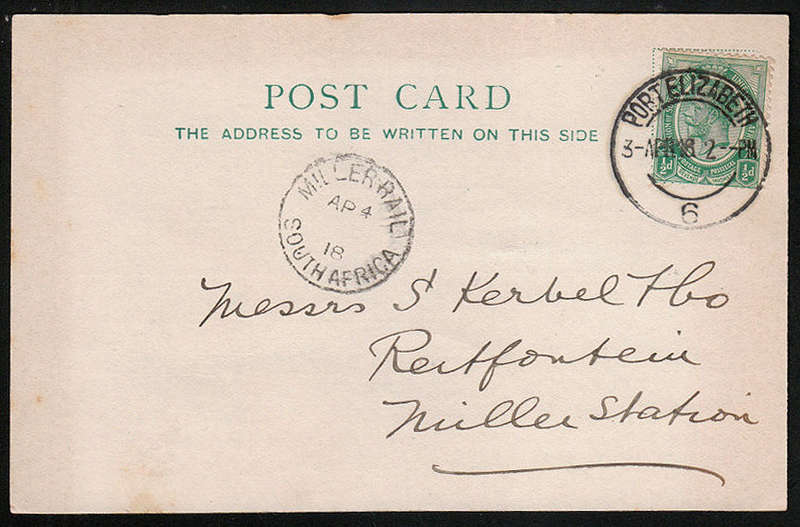 POST CARD
THE ADDRESS TO BE WRITTEN ON THIS SIDE
PORT ELIZABETH
3-AP 18 2--PM
6
½d ½d
POSTAGE
MILLER RAIL
AP 4
18
SOUTH AFRICA
Messrs S Kerbel & Co
Reitfontein
Miller Station